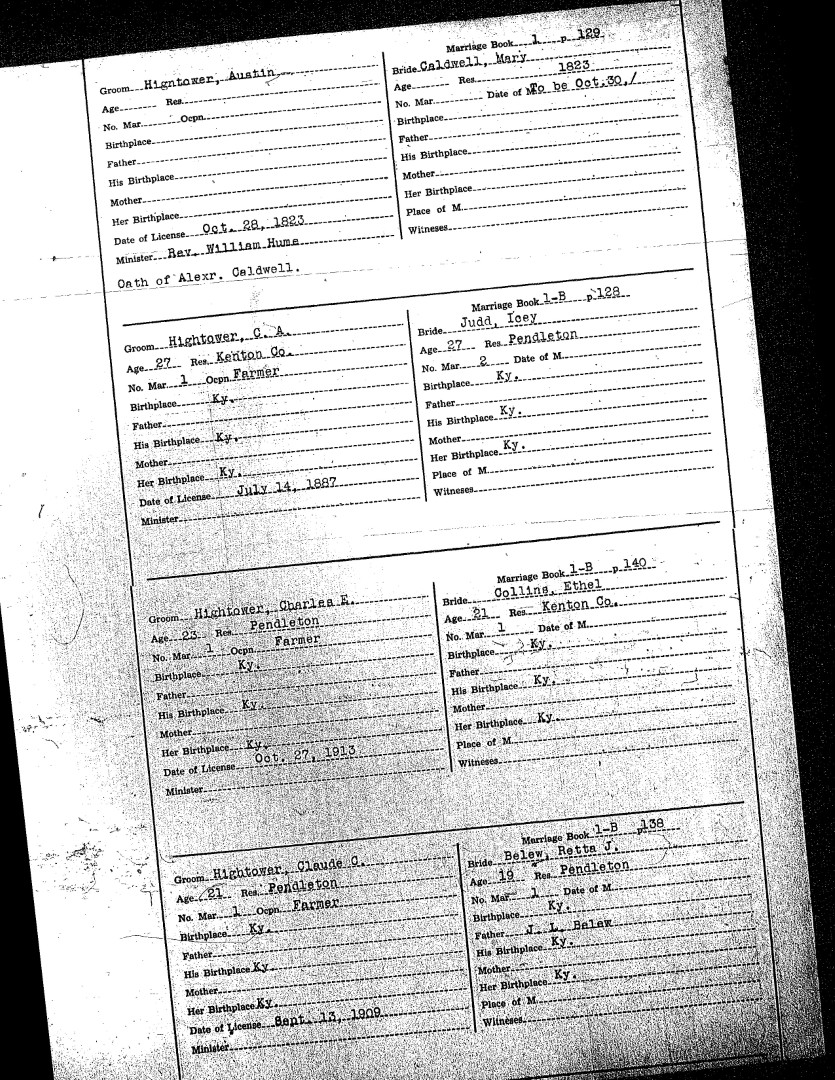 Marriage Book 1 p 129
Groom Hightower, Austin
Age Res.
No. Mar. Ocpn.
Birthplace
Father
His Birthplace
Mother
Her Birthplace
Date of License Oct. 28, 1823
Minister Rev. William Hume
Bride Caldwell, Mary
Age Res. 1823
No. Mar. Date of M. To be Oct. 30,/
Birthplace
Father
His Birthplace
Mother
Her Birthplace
Place of M.
Witnesses
Oath of Alexr. Caldwell.
Marriage Book 1-B p 128
Groom Hightower, C. A.
Age 27 Res. Kenton Co.
No. Mar. 1 Ocpn. Farmer
Birthplace Ky.
Father
His Birthplace Ky.
Mother
Her Birthplace Ky.
Date of License July 14, 1887
Minister
Bride Judd, Icey
Age 27 Res. Pendleton
No. Mar. 2 Date of M.
Birthplace Ky.
Father
His Birthplace Ky.
Mother
Her Birthplace Ky.
Place of M.
Witnesses
Marriage Book 1-B p 140
Groom Hightower, Charles E.
Age 23 Res. Pendleton
No. Mar. 1 Ocpn. Farmer
Birthplace Ky.
Father
His Birthplace Ky.
Mother
Her Birthplace Ky.
Date of License Oct. 27, 1913
Minister
Bride Collins, Ethel
Age 21 Res. Kenton Co.
No. Mar. 1 Date of M.
Birthplace Ky.
Father
His Birthplace Ky.
Mother
Her Birthplace Ky.
Place of M.
Witnesses
Marriage Book 1-B p 138
Groom Hightower, Claude C.
Age 21 Res. Pendleton
No. Mar. 1 Ocpn. Farmer
Birthplace Ky.
Father
His Birthplace Ky.
Mother
Her Birthplace Ky.
Date of License Sept. 13, 1909
Minister
Bride Belew, Retta J.
Age 19 Res. Pendleton
No. Mar. 1 Date of M.
Birthplace Ky.
Father J. L. Belew
His Birthplace Ky.
Mother
Her Birthplace Ky.
Place of M.
Witnesses